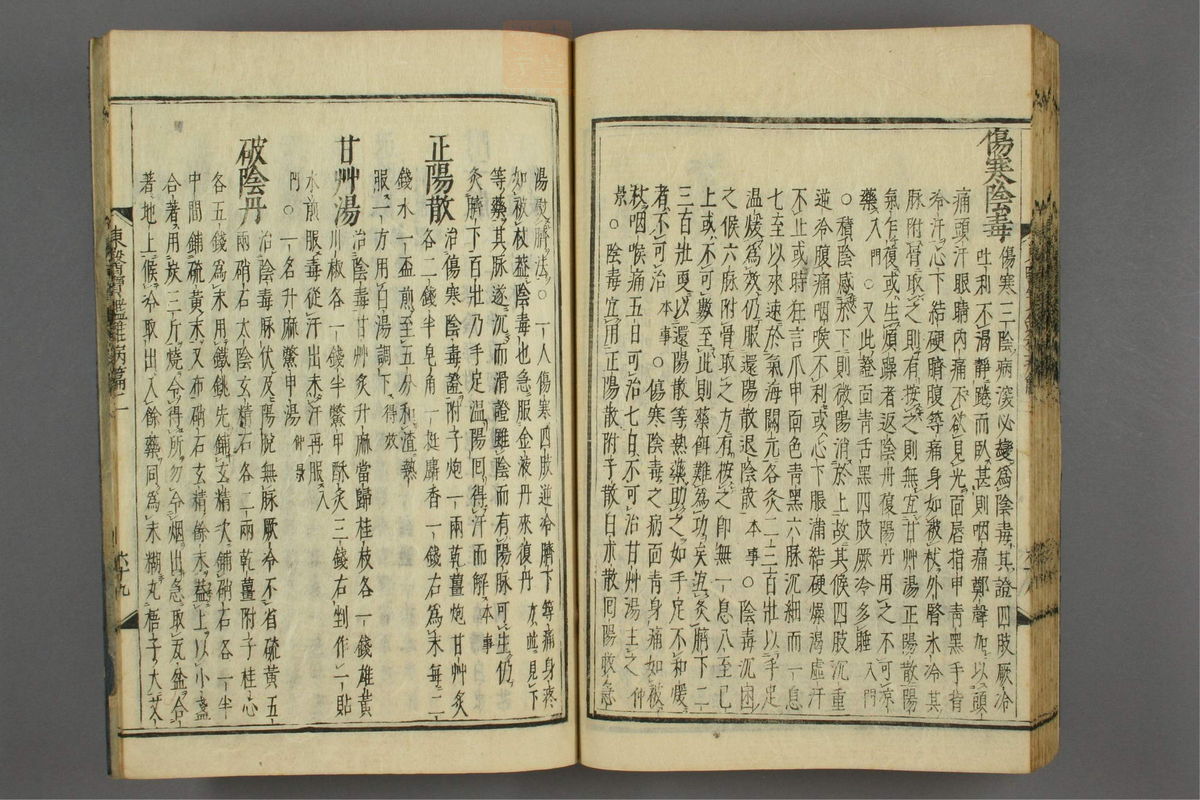 傷寒陰毒
傷寒三陰病深必變爲陰毒其證四肢厥冷
吐利不渴靜踡而臥甚則咽痛鄭聲加以頭
痛頭汗眼睛內痛不欲見光面唇指甲青黑手背
冷汗心下結硬臍腹築痛身如被杖外腎氷冷其
脉附骨取之則有按之則無宜甘艸湯正陽散陽
氣乍復或生煩躁者返陰丹復陽丹用之不可凉
藥入門○又此證面青舌黑四肢厥冷多睡入門
○積陰感於下則微陽消於上故其候四肢沉重
逆冷腹痛咽喉不利或心下脹滿結硬燥渴虛汗
不止或時狂言爪甲面色青黑六脉沉細而一息
七至以來速於氣海關元各灸二三百壯以手足
温煖爲效仍服還陽散退陰散本事○陰毒沉困
之候六脉附骨取之方有按之卽無一息八至已
上或不可數至此則藥餌難爲功矣宜灸臍下二
三百壯更以還陽散等熱藥助之如手足不和煖
者不可治本事○傷寒陰毒之病面青身痛如被
杖咽喉痛五日可治七日不可治甘艸湯主之仲
景○陰毒宜用正陽散附子散白朮散囘陽救急
湯熨臍法○一人傷寒四肢逆冷臍下築痛身疼
如被杖盖陰毒也急服金液丹來復丹並見下
等藥其脉遂沉而滑證雖陰而有陽脉可生仍
灸臍下百壯乃手足温陽囘得汗而解本事
正陽散
治傷寒陰毒證附子炮一兩乾薑炮甘艸灸
各二錢半皂角一挺麝香一錢右爲末每二
錢水一盃煎至五分和渣熱
服一方用白湯調下得效
甘艸湯
治陰毒甘艸灸升麻當歸桂枝各一錢雄黃
川椒各一錢半鱉甲酥灸三錢右剉作一貼
水煎服毒從汗出未汗再服入
門○一名升麻鱉甲湯仲景
破陰丹
治陰毒脉伏及陽脫無脉厥冷不省硫黃五
兩硝石太陰玄精石各二兩乾薑附子桂心
各五錢爲末用鐵銚先鋪玄精次鋪硝石各一半
中間鋪硫黃末又布硝石玄精餘末盖上以小盞
合著用炭三斤燒令得所勿令烟出急取瓦盆合
著地上候冷取出入餘藥同爲末糊丸梧子大艾
東醫寶鑑雜病篇二